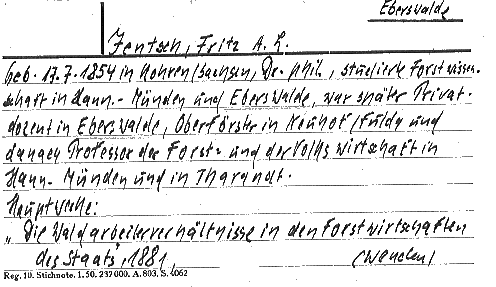 Eberswalde
Jentsch, Fritz A. L.
Geb. 17.7.1854 in Kohren/Sachsen, Dr. phil., studierte Forstwissen-
schaft in Hann.- Münden und Eberswalde, war später Privat-
dozent in Eberswalde, Oberförster in Neuhof/Fulda und
danach Professor der Forst- und der Volkswirtschaft in
Hann. Münden und in Tharandt.
Hauptwerke:
"Die Waldarbeiterverhältnisse in den Forstwirtschaften
des Staats", 1881,
Reg. 10. Stichnote. 1. 50. 237 000. A. 803. S. 4062